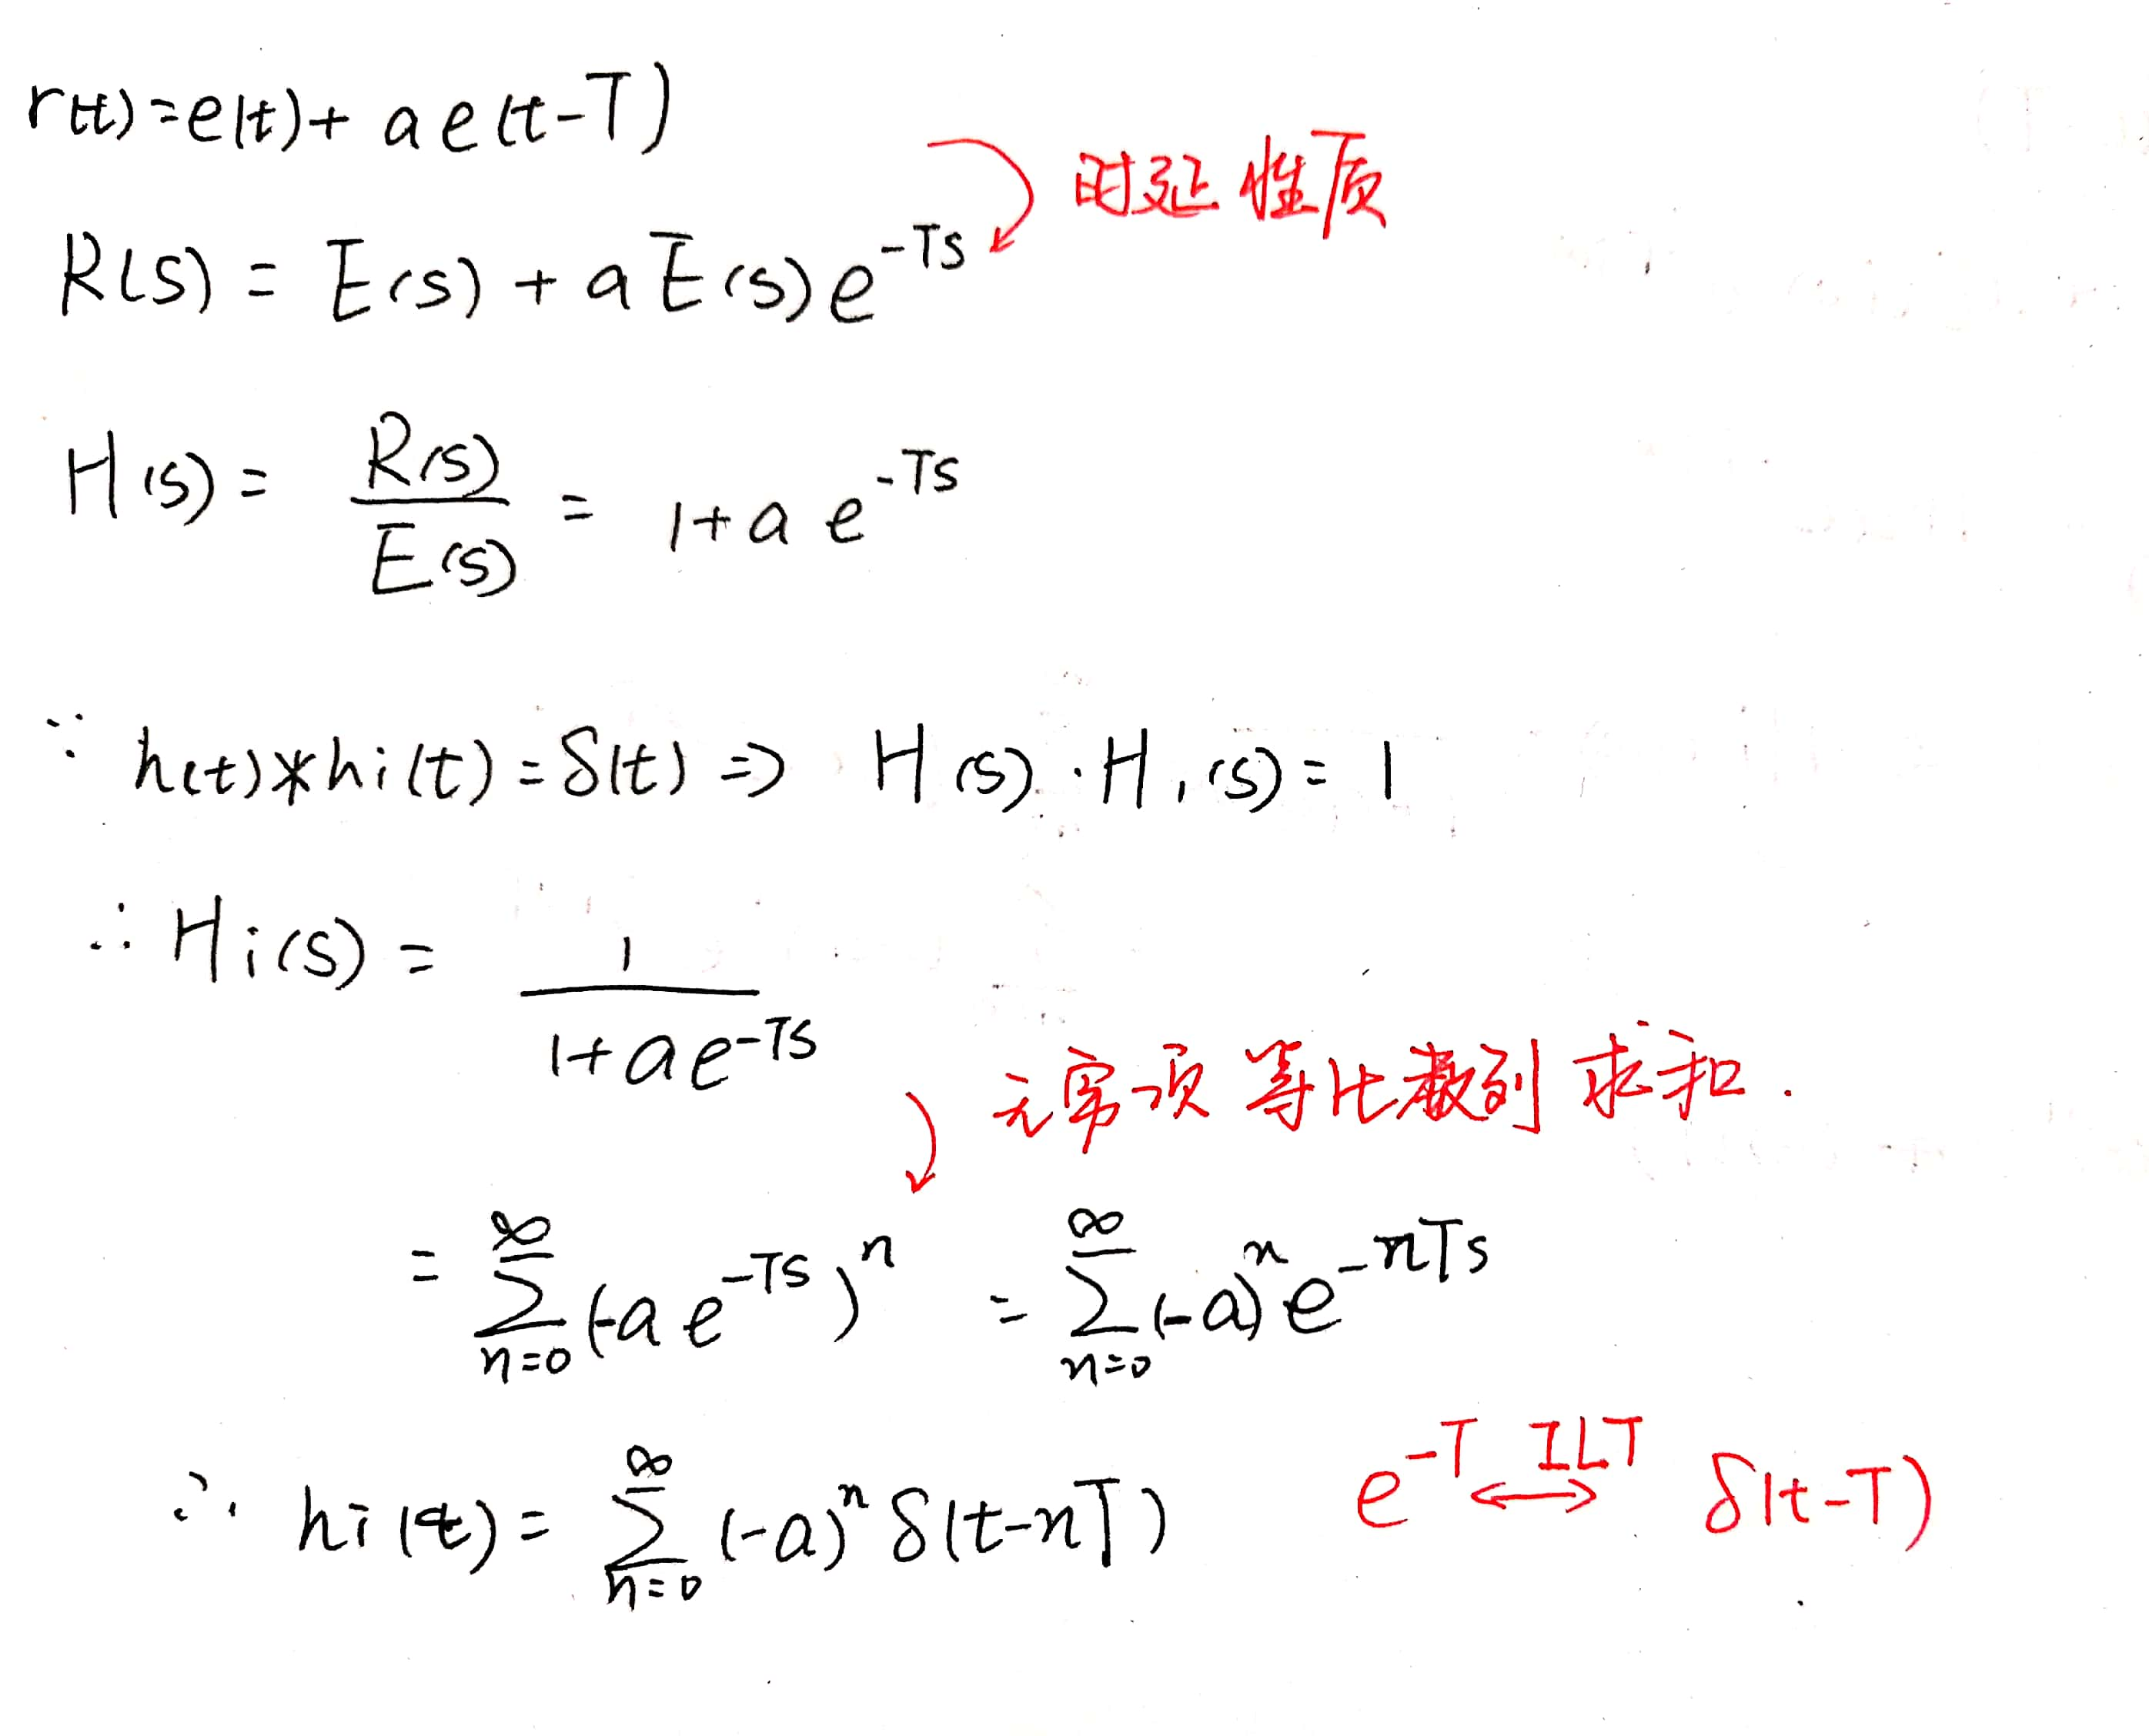 r(t)=e(t)+ a e(t-T)
时延性质
R(s) = E(s) + a E(s) e^{-Ts}
H(s) = \frac{R(s)}{E(s)} = 1+a e^{-Ts}
∵ h(t)*hi(t)=δ(t) ⇒ H(s)·Hi(s)=1
∴ Hi(s) = \frac{1}{1+ae^{-Ts}}
无穷项等比数列求和.
= \sum_{n=0}^{∞} (-a e^{-Ts})^n = \sum_{n=0}^{∞} (-a)^n e^{-nTs}
∴ hi(t) = \sum_{n=0}^{∞} (-a)^n δ(t-nT) e^{-T} \overset{ILT}{↔} δ(t-T)